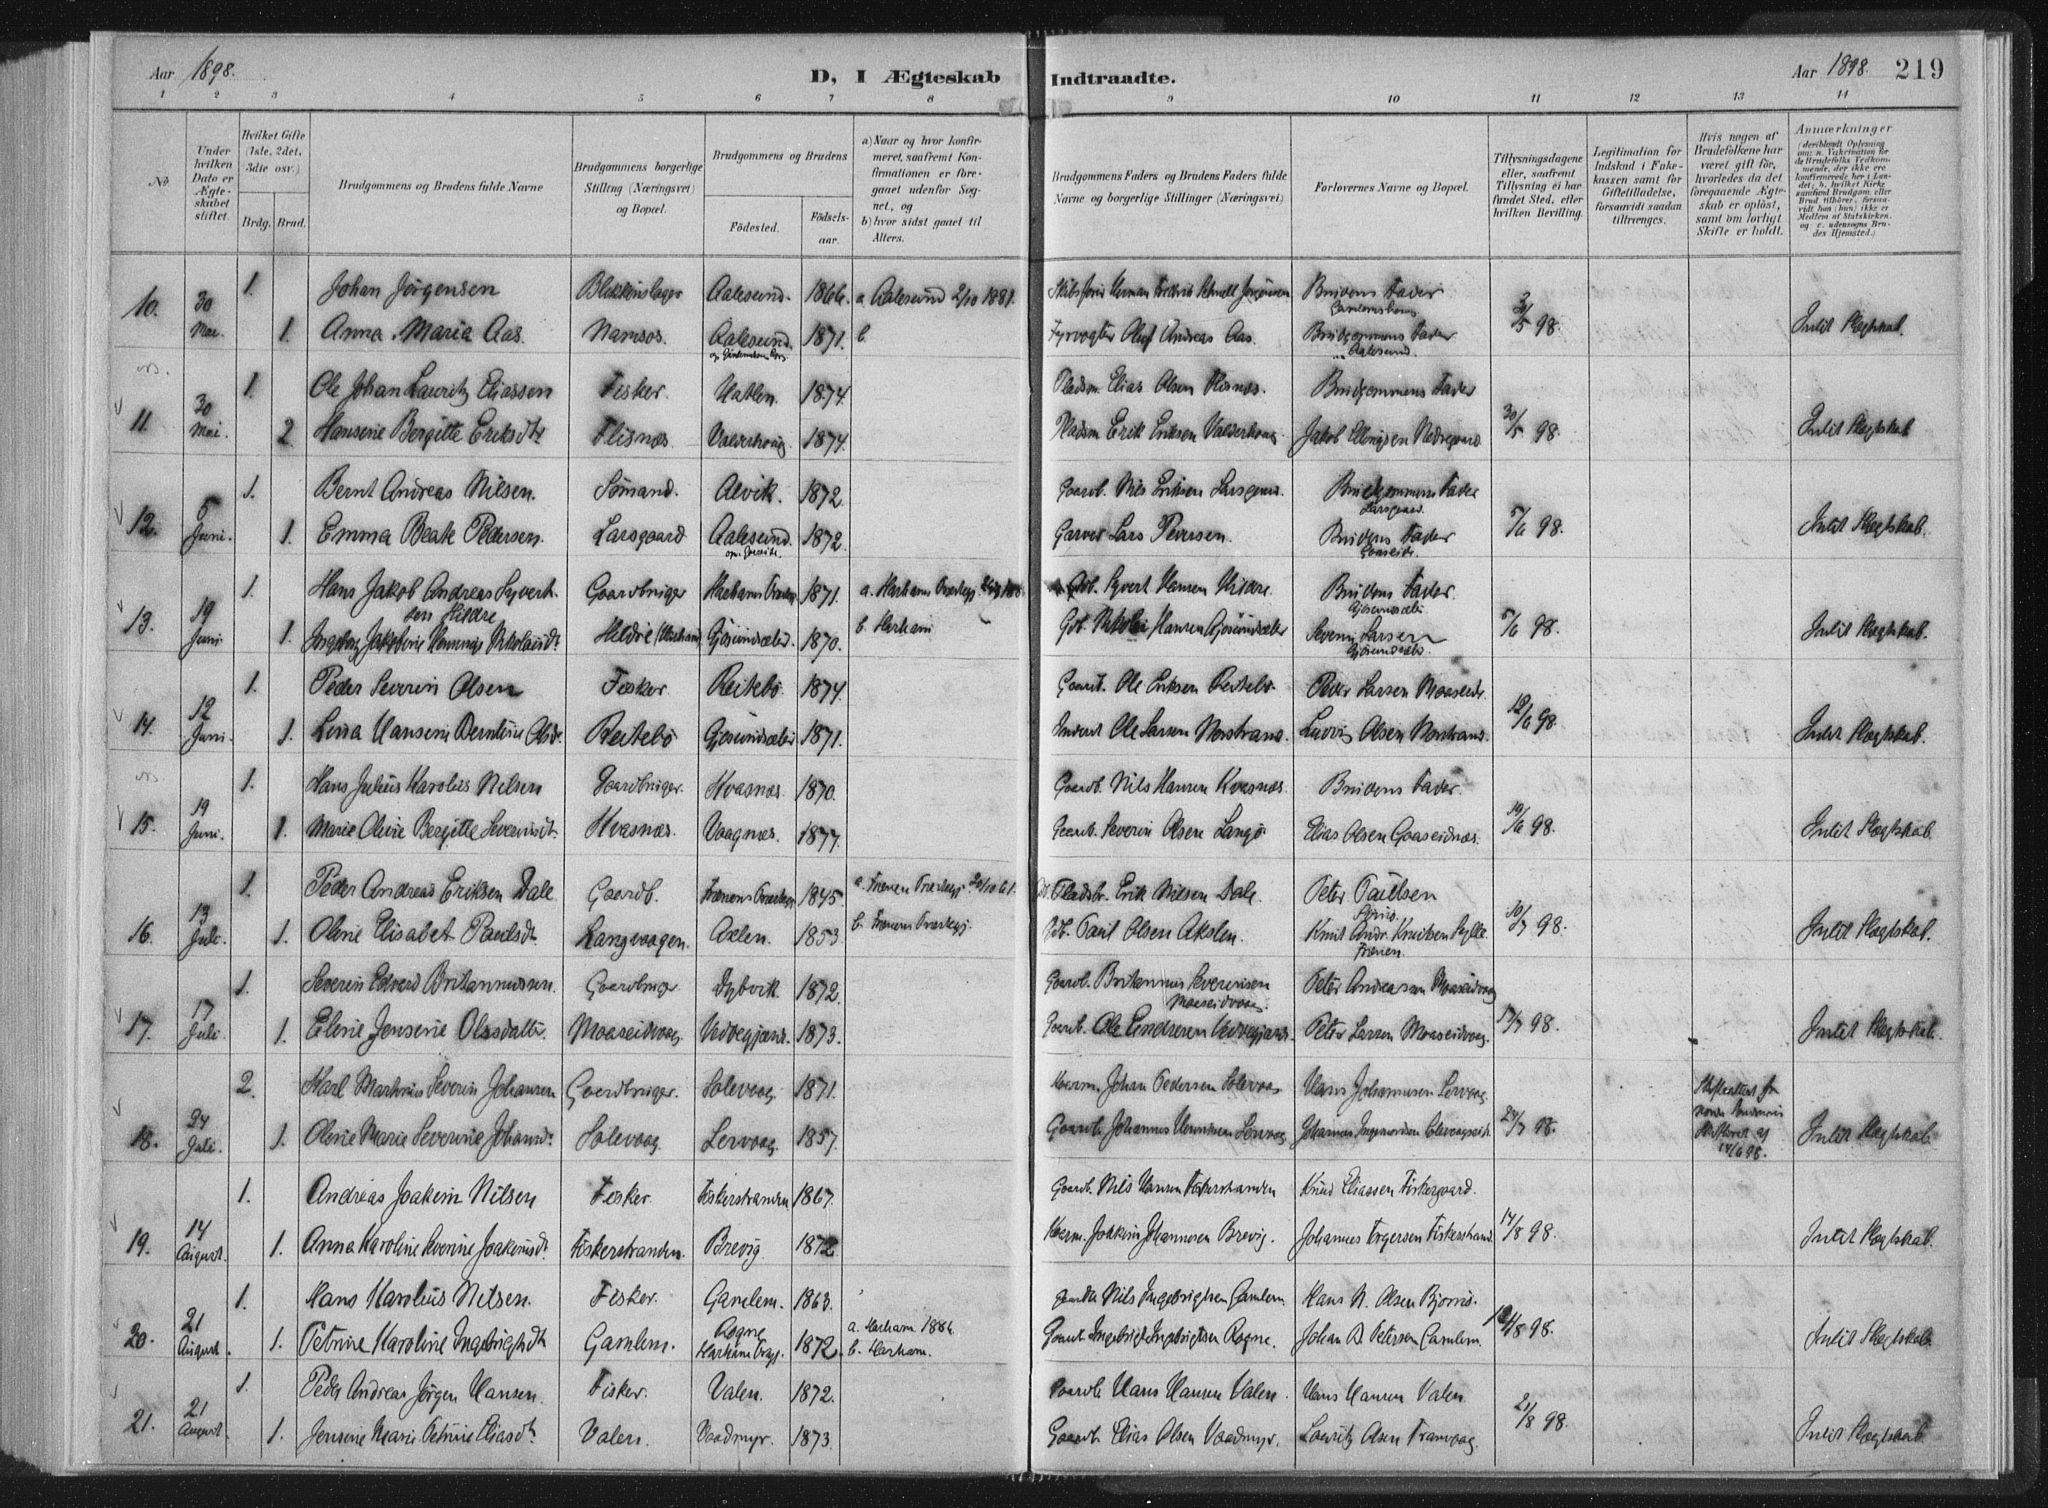 Aar 1898. D, I Ægteskab Indtraadte. Aar 1898. 219
1 2 3 4 5 6 7 8 9 10 11 12 13 14
No
Under hvilken Dato er Ægteskabet stiftet.
Hvilket Gifte (1ste, 2det, 3die osv.)
Brdg. Brud.
Brudgommens og Brudens fulde Navne
Brudgommens borgerlige Stilling (Næringsvei) og Bopæl.
Brudgommens og Brudens
Fødested.
Fødselsaar.
a) Naar og hvor konfirmeret, saafremt Konfirmationen er foregaaet udenfor Sognet, og
b) hvor sidst gaaet til Alters.
Brudgommens Faders og Brudens Faders fulde Navne og borgerlige Stillinger (Næringsvei)
Forlovernes Navne og Bopæl.
Tillysningsdagene eller, saafremt Tillysning ei har fundet Sted, efter hvilken Bevilling.
Legitimation for Indskud i Enkekassen samt for Giftetilladelse, forsaavidt saadan tiltrænges.
Hvis nogen af Brudefolkene har været gift før, hvorledes da det foregaaende Ægteskab er opløst, samt om lovligt Skifte er holdt.
Anmærkninger
10. 30 Mai. 1. Johan Jørgensen Blikkenslager Aalesund. 1866. a Aalesund 2/10 1881. Brudens Fader
1. Anna Maria Aas. Namsos. Aalesund. 1871. b. Fyrvogter Oluf Andreas Aas. Brudgommens Fader Aalesund. 98. Intet Slægtskab.
11 30 Mai. 1. Ole Johan Lauritz Eliassen Fisker. Hatlen. 1874. Pladsm. Elias Olsen Flisnæs. Brudgommens Fader
2. Hansine Bergitte Eriksdt. Flisnæs Valderhoug 1874. Pladsm. Erik Eriksen Valderhoug. Jakob Ellingsen Nedregaard 30/5 98. Intet Slægtskab
12. 5 Juni. 1. Bernt Andreas Nilsen. Sømand. Alvik. 1872 Gaardb. Nils Eriksen Larsgaard. Brudgommens Fader Larsgaard.
1. Emma Beate Pedersen. Larsgaard Aalesund. 1872. Garver Lars Pedersen. Brudens Fader Gaaseide. 5/6 98. Intet Slægtskab.
13. 19 Juni 1. Hans Jakob Andreas Syvertsen Hildre Gaardbruger Harhams Præstegj. 1871. a. Harhams Præstegj. Gdb. Syvert Hansen Hildre. Brudens Fader. Gjøsundsæter
1. Ingeborg Jakobine Hennings Nikolaisdt. Hildre (Harham) Gjøsundsæter. 1870. b. Harham Gdb. Nikolai Hansen Gjøsundsæter Severin Larsen Gjøsundsæter. 5/6 98. Intet Slægtskab.
14. 12 Juni. 1. Peder Severin Olsen Fisker Reitebø. 1874. Gaardb. Ole Eriksen Reitebø. Peder Larsen Maaseide.
1. Lina Hansine Berntine Olsdt. Reitebø Gjøsundsæter 1871. Inderst Ole Larsen Norstrand. Ludvig Olsen Norstrand. 12/6 98. Intet Slægtskab.
15. 19 Juni. 1. Hans Julius Karolus Nilsen Gaardbruger. Kvasnæs. 1870. Gaardb. Nils Hansen Kvasnæs. Brudens Fader.
1. Marie Oline Bergitte Severinsdt. Kvasnæs. Vaagnæs. 1877. Gaardb. Severin Olsen Langø. Elias Olsen Gaaseidnæs. 19/6 98. Intet Slægtskab.
16. 13 Juli. 1. Peder Andreas Eriksen Dale Gaardb. Frænens Præstegj. 1845. a. Frænen Præstegj. Pladsbr. Erik Nilsen Dale. Peter Paulsen
1. Oline Elisabet Paulsdt. Langevaagen. Axlen. 1853. b. Frænens Præstegj. Gdb. Paul Olsen Akslen. Knut Andr. Knudsen Frænen. 98. Intet Slægtskab.
17. 17 Juli. 1. Severin Edvard Britannussen. Gaardbruger Dybvik. 1872. Gaardb. Britannus Severinsen Maaseidvaag. Peter Andreassen Maaseidvaag
1. Eline Jensine Olsdatter. Maaseidvaag. Vedvegjærd. 1873. Gaardb. Ole Endresen Vedvegjærd. Peter Larsen Maaseidvaag. 17/7 98. Intet Slægtskab.
18. 24 Juli. 2. Karl Markus Severin Johansen Gaardbruger. Solevaag. 1871. Kaarm. Johan Pedersen Solevaag Hans Johannessen Lervaag.
1. Oline Marie Severine Johansdt. Solevaag. Lervaag. 1857. Gaardb. Johannes Henriksen Lervaag. 24/7 98. 14/6 98. Intet Slægtskab.
19. 14 August. 1. Andreas Joakim Nilsen Fisker. Fiskerstranden 1867. Gaardb. Nils Hansen Fiskerstranden Knud Eliassen Fiskergaard.
1. Anna Karoline Iverine Joakimsdt. Fiskerstranden. Brevig. 1872 Kaarm. Joakim Johannesen Brevig. Johannes Torgersen Fiskerstrand. 14/8 98. Intet Slægtskab.
20. 21 August. 1. Hans Karolius Nilsen. Fisker. Gamlem. 1863. Nils Ingebrigtsen Gamlem. Hans N. Olsen Bjørnø.
1. Petrine Karoline Ingebrigtsdt. Gamlem. Rogne Harhams Prgj. 1872. a. Harham 1886. b. Harham. Gaardb. Ingebrigt Ingebrigtsen Rogne. Johan B. Petersen Gamlem. 98. Intet Slægtskab.
21. 21 August. 1. Peder Andreas Jørgen Hansen. Fisker. Valen. 1872. Gaardb. Hans Hansen Valen. Hans Hansen Valen
1. Jensine Marie Petrine Eliasdt. Valen. Vaadmyr. 1873. Gaardb. Elias Olsen Vaadmyr. Lauritz Olsen Tranvaag. 21/8 98. Intet Slægtskab.